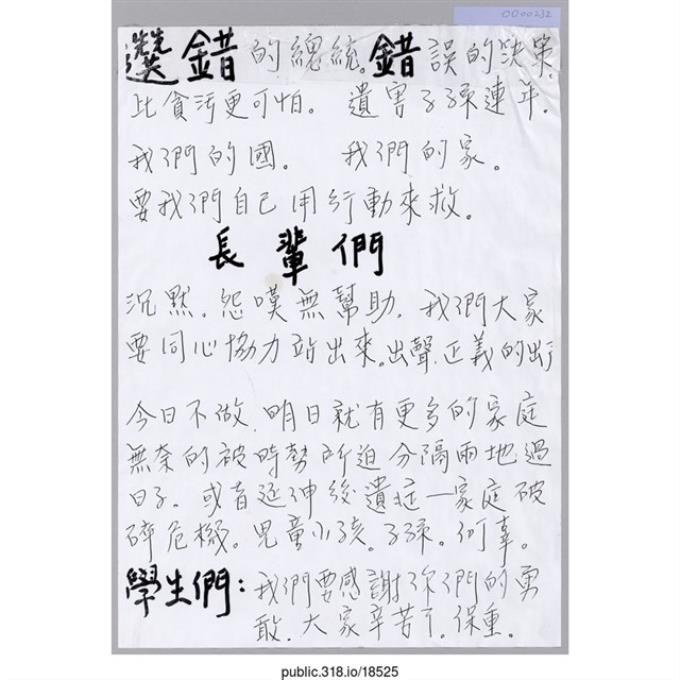 0000232
選錯的總統。錯誤的決策。
比貪污更可怕。 遺害子孫連年.
我們的國。 我們的家。
要我們自己用行動來救。
長輩們
沉默.怨嘆無幫助.我們大家
要同心協力站出來。出聲.正義的出
今日不做.明日就有更多的家庭
無奈的被時勢所迫分隔兩地過
日子。或者延伸後遺症一家庭破
碎危機。児童小孩。子孫。何辜。
學生們:我們要感謝你們的勇
敢.大家辛苦了.保重。
public.318.io/18525